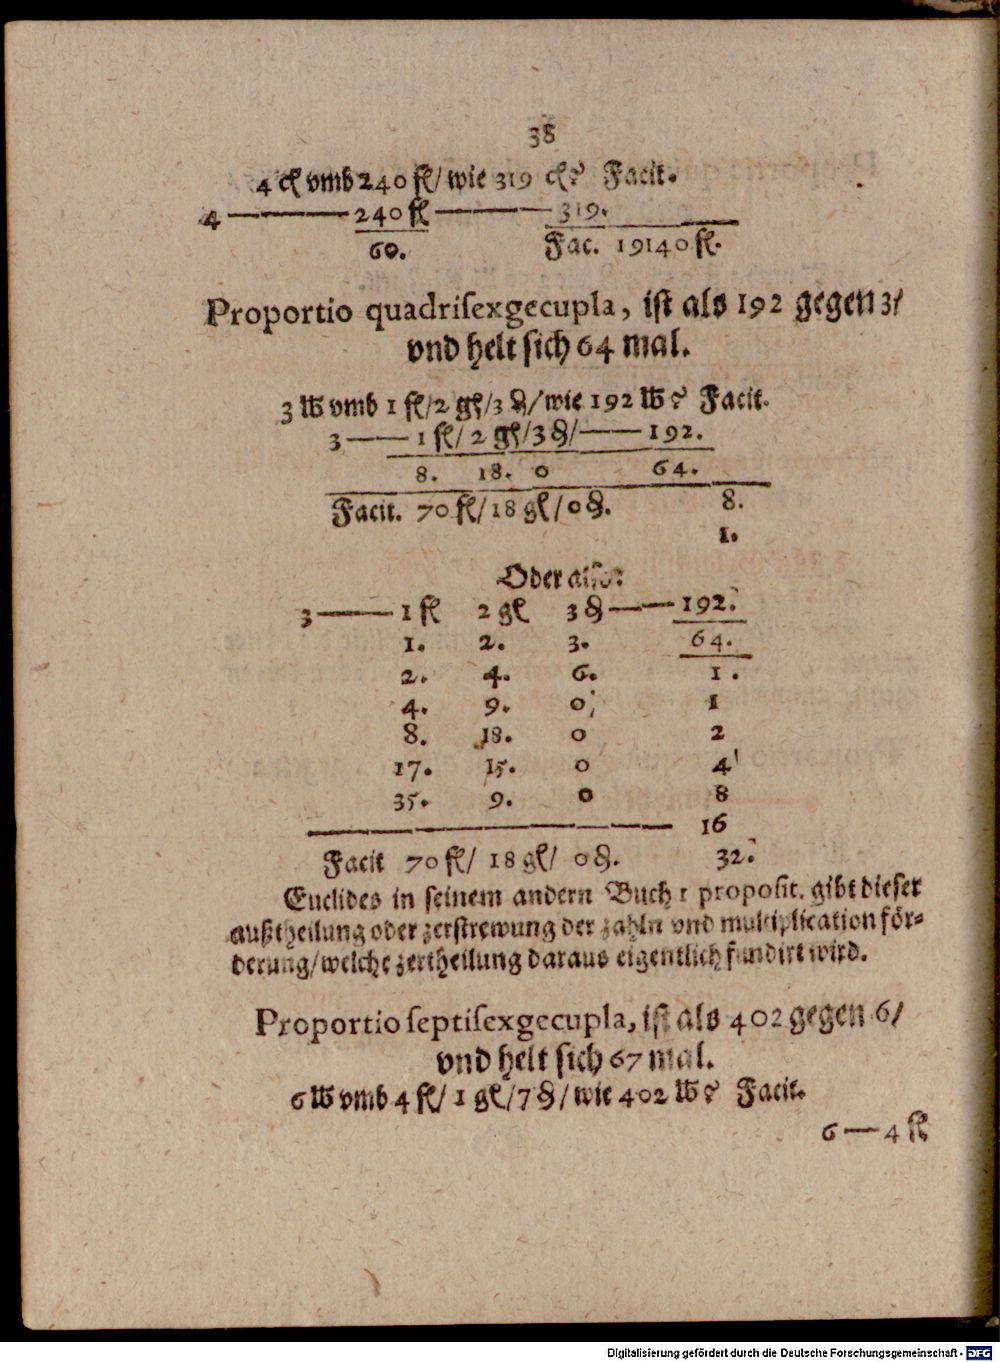 38
4 cł vmb 240 fl/ wie 319 cł? Facit.
4 —— 240 fl —— 319.
60. Fac. 19140 fl.
Proportio quadriſexgecupla, iſt als 192 gegen 3/
vnd helt ſich 64 mal.
3 ℔ vmb 1 fl/2 gl/3 ₰/wie 192 ℔? Facit.
3 —— 1 fl/ 2 gl/3₰/—— 192.
8. 18. 0 64.
Facit. 70 fl/18 gl/0₰. 8.
1.
Oder alſo:
3 —— 1 fl 2 gl 3₰ —— 192.
1. 2. 3. 64.
2. 4. 6. 1.
4. 9. 0 1
8. 18. 0 2
17. 15. 0 4
35. 9. 0 8
16
Facit 70 fl/ 18 gl/ 0₰. 32.
Euclides in ſeinem andern Buch 1 propoſit. gibt dieſer
außtheilung oder zerſtrewung der zahln vnd multiplication för-
derung/welche zertheilung daraus eigentlich fundirt wird.
Proportio ſeptiſexgecupla, iſt als 402 gegen 6/
vnd helt ſich 67 mal.
6 ℔ vmb 4 fl/ 1 gl/7₰/wie 402 ℔? Facit.
6 — 4 fl
Digitalisierung gefördert durch die Deutsche Forschungsgemeinschaft - DFG